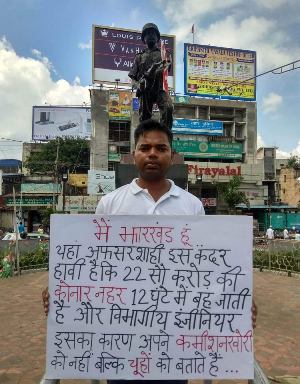 LOUIS PHILIPPE
VAN HEUSEN
Firayalal
मैं झारखंड हूं
यहां अफसरशाही इस कदर
हावी है कि 22 सौ करोड़ की
कोनार नहर 12 घंटे में बह जाती
है और विभागीय इंजीनियर
इसका कारण अपने कमीशनखोरी
को नहीं बल्कि चूहों को बताते हैं...